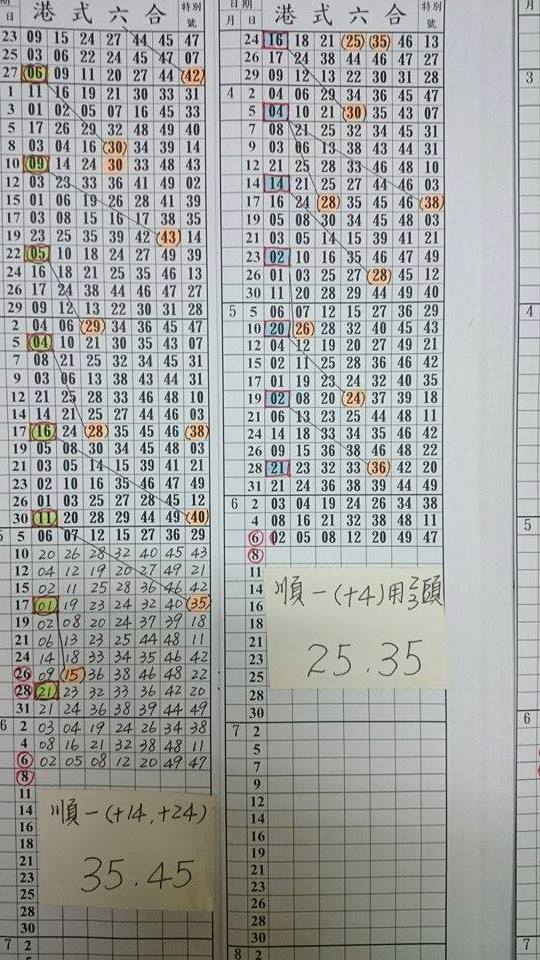 日 港式六合 特別號
23 09 15 24 27 44 45 47
25 03 06 22 24 45 47 07
27 06 09 11 20 27 44 42
1 11 16 19 21 30 33 31
3 01 02 05 07 16 45 33
5 17 26 29 32 48 49 40
8 03 04 16 30 34 39 14
10 09 14 24 30 33 48 43
12 03 23 33 36 41 49 02
15 01 06 19 26 28 41 39
17 03 08 15 16 17 38 35
19 23 25 35 39 42 43 14
22 05 10 18 24 27 49 39
24 16 18 21 25 35 46 13
26 17 24 38 44 46 47 27
29 09 12 13 22 30 31 28
2 04 06 29 34 36 45 47
5 04 10 21 30 35 43 07
7 08 21 25 32 34 45 31
9 03 06 13 38 43 44 31
12 21 25 28 33 46 48 10
14 14 21 25 27 44 46 03
17 16 24 28 35 45 46 38
19 05 08 30 34 45 48 03
21 03 05 14 15 39 41 21
23 02 10 16 35 46 47 49
26 01 03 25 27 28 45 12
30 11 20 28 29 44 49 40
5 5 06 07 12 15 27 36 29
10 20 26 28 32 40 45 43
12 04 12 19 20 27 49 21
15 02 11 25 28 36 46 42
17 01 19 23 24 32 40 35
19 02 08 20 24 37 39 18
21 06 13 23 25 44 48 11
24 14 18 33 34 35 46 42
26 09 15 36 38 46 48 22
28 21 23 32 33 36 42 20
31 21 24 36 38 39 44 49
6 2 03 04 19 24 26 34 38
4 08 16 21 32 38 48 11
6 02 05 08 12 20 49 47
8
11
14
16
18
21
23
25
28
30
7 2
順一(+14,+24)
35.45
日期 月 日 港式六合 特別號
24 16 18 21 25 35 46 13
26 17 24 38 44 46 47 27
29 09 12 13 22 30 31 28
4 2 04 06 29 34 36 45 47
5 04 10 21 30 35 43 07
7 08 21 25 32 34 45 31
9 03 06 13 38 43 44 31
12 21 25 28 33 46 48 10
14 14 21 25 27 44 46 03
17 16 24 28 35 45 46 38
19 05 08 30 34 45 48 03
21 03 05 14 15 39 41 21
23 02 10 16 35 46 47 49
26 01 03 25 27 28 45 12
30 11 20 28 29 44 49 40
5 5 06 07 12 15 27 36 29
10 20 26 28 32 40 45 43
12 04 12 19 20 27 49 21
15 02 11 25 28 36 46 42
17 01 19 23 24 32 40 35
19 02 08 20 24 37 39 18
21 06 13 23 25 44 48 11
24 14 18 33 34 35 46 42
26 09 15 36 38 46 48 22
28 21 23 32 33 36 42 20
31 21 24 36 38 39 44 49
6 2 03 04 19 24 26 34 38
4 08 16 21 32 38 48 11
6 02 05 08 12 20 49 47
8
11
14
16
18
21
23
25
28
30
7 2
5
7
9
12
14
16
19
21
23
26
28
30
8 2
順一(+4)用2/3頭
25.35
月
3
4
5
6
7